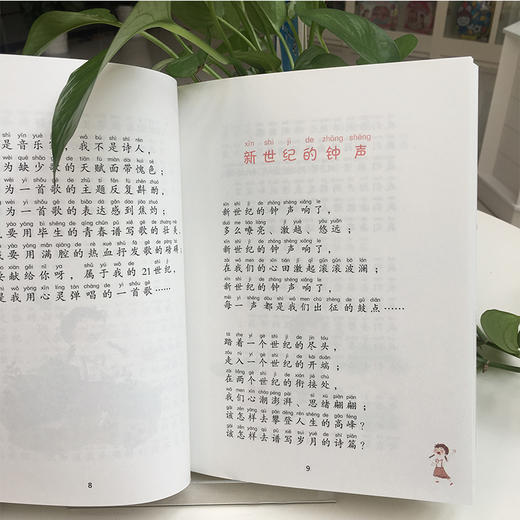 shì yīn yuè wǒ bú shì shī rén
是音乐 我不是诗人,
wèi quē shǎo gē de tiān fù miàn dài kuì sè
为缺少歌的天赋面带愧色;
wèi yì shǒu gē de zhǔ tí fǎn fù zhēn zhuó
为一首歌的主题反复斟酌,
wèi yì shǒu gē de biǎo dá gǎn dào jiāo zhuó
为一首歌的表达感到焦灼;
要用毕生的青春谱写歌的壮美,
要用满腔的热血抒发歌的
要献给你呀,属于我的21世纪,
是我用心灵弹唱的一首歌……
8
xīn shì jì de zhōng shēng
新世纪的钟声
xīn shì jì de zhōng shēng xiǎng le
新世纪的钟声响了,
duō me liáo liàng jī yuè yōu yuǎn
多么嘹亮、激越、悠远;
xīn shì jì de zhōng shēng xiǎng le
新世纪的钟声响了,
zài wǒ men de xīn tián jī gǔn gǔn bō lán
在我们的心田激滚滚波澜;
xīn shì jì de zhōng shēng xiǎng le
新世纪的钟声响了,
měi yì shēng dōu shì wǒ men chū zhēng de gǔ diǎn
每一声都是我们出征的鼓点……
tà zhe yí gè shì jì de jìn tóu
踏着一个世纪的尽头,
zǒu rù yí gè shì jì de kāi duān
走入一个世纪的开端;
zài liǎng gè shì jì de xián jiē chù
在两个世纪的衔接处,
wǒ men xīn cháo péng pài sī xù piān piān
我们心潮澎湃、思绪翩翩;
gāi zěn yàng qù pān dēng rén shēng de gāo fēng
该怎样去攀登人生的高峰?
gāi zěn yàng qù pǔ xiě suì yuè de shī piān
该怎样去谱写岁月的诗篇?
9